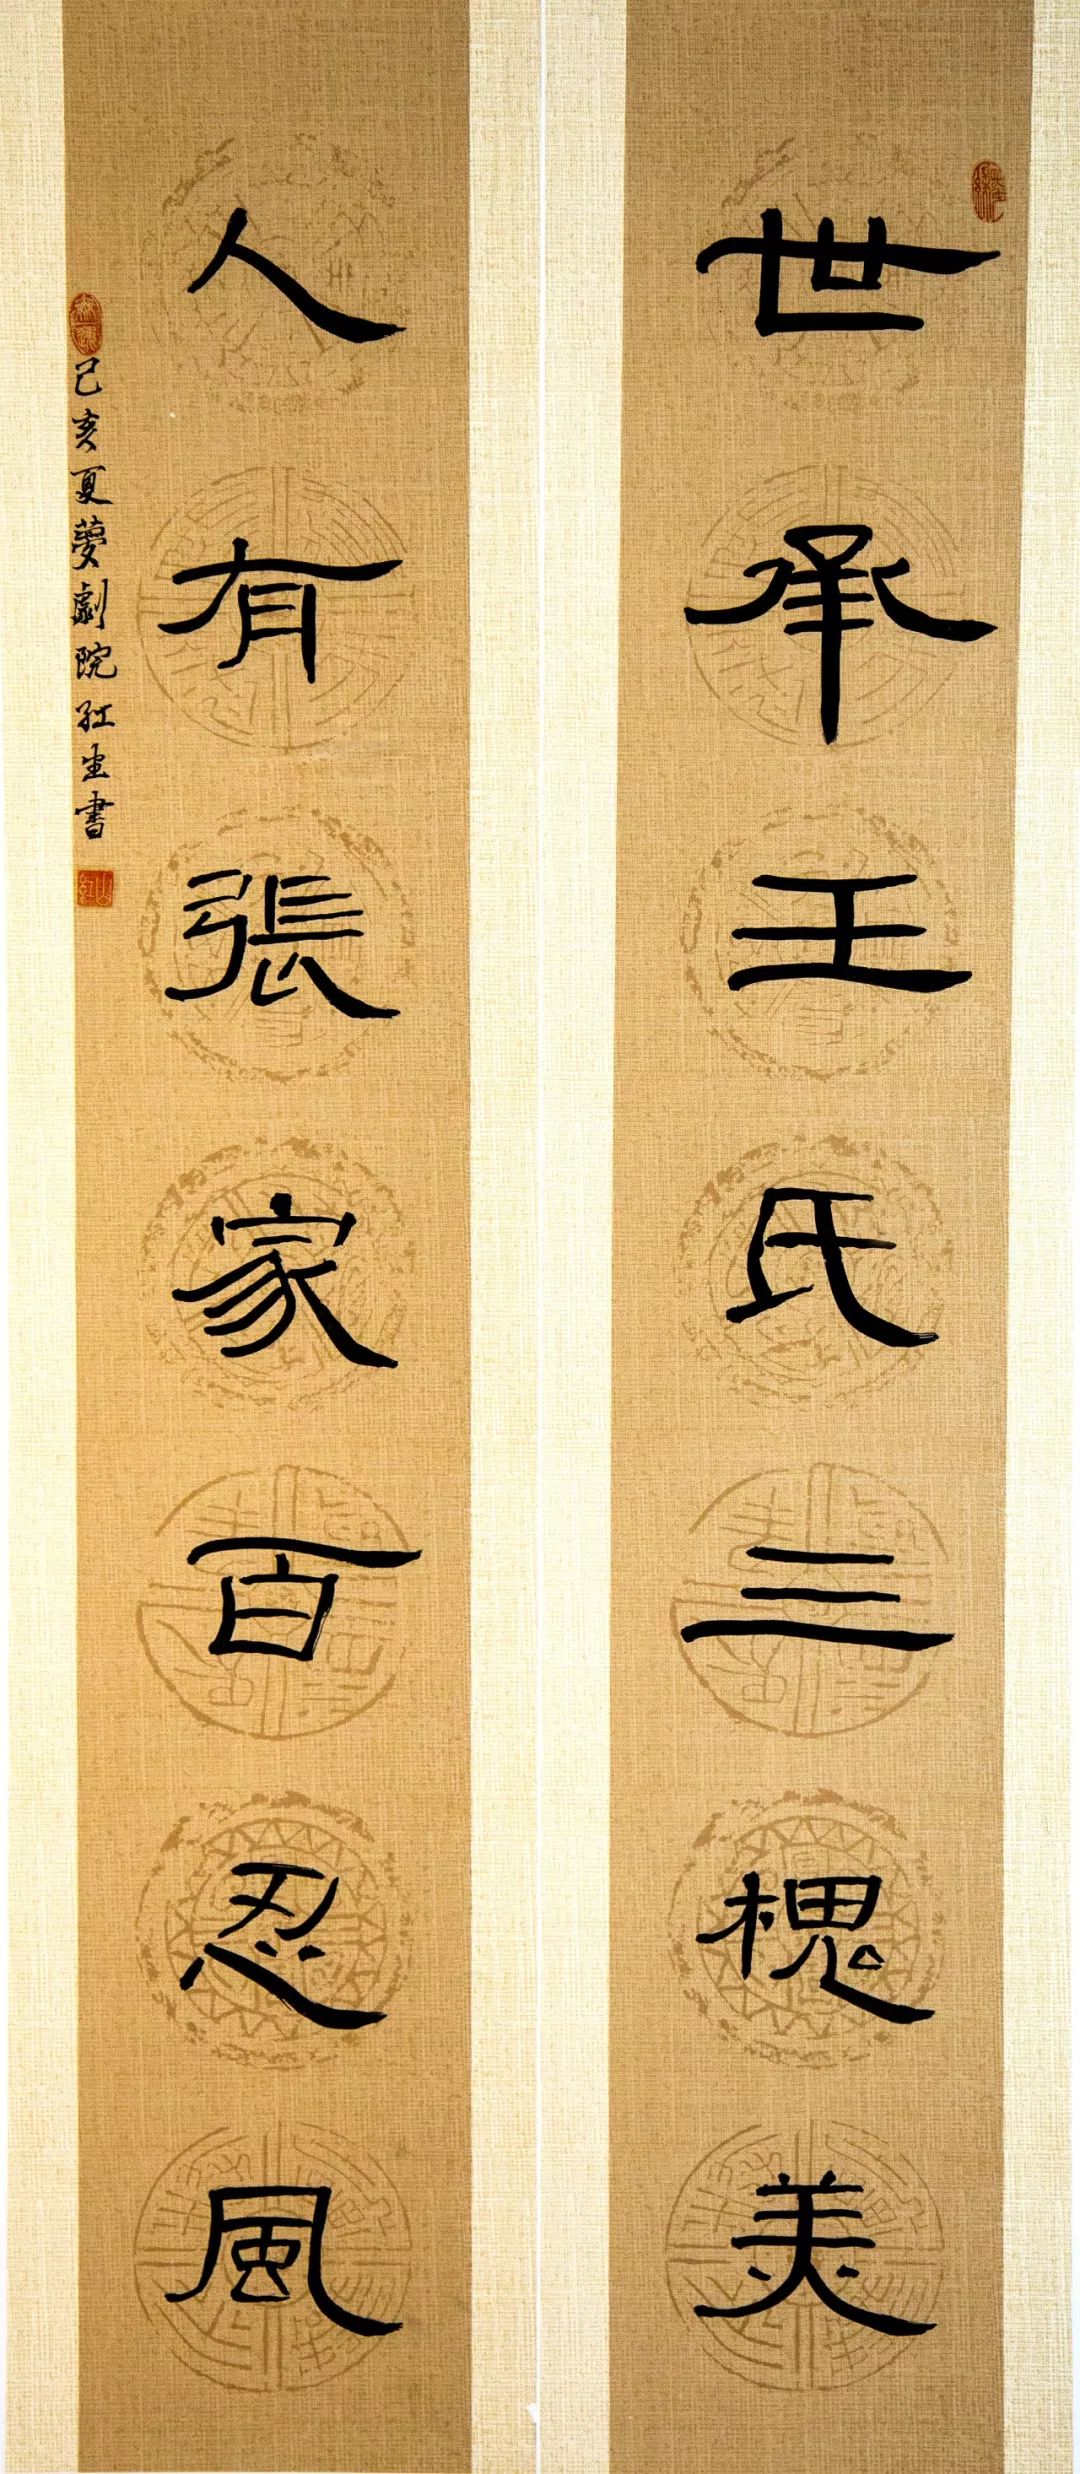 世承王氏三槐美
人有張家百忍風
己亥夏夢劇院紅生書